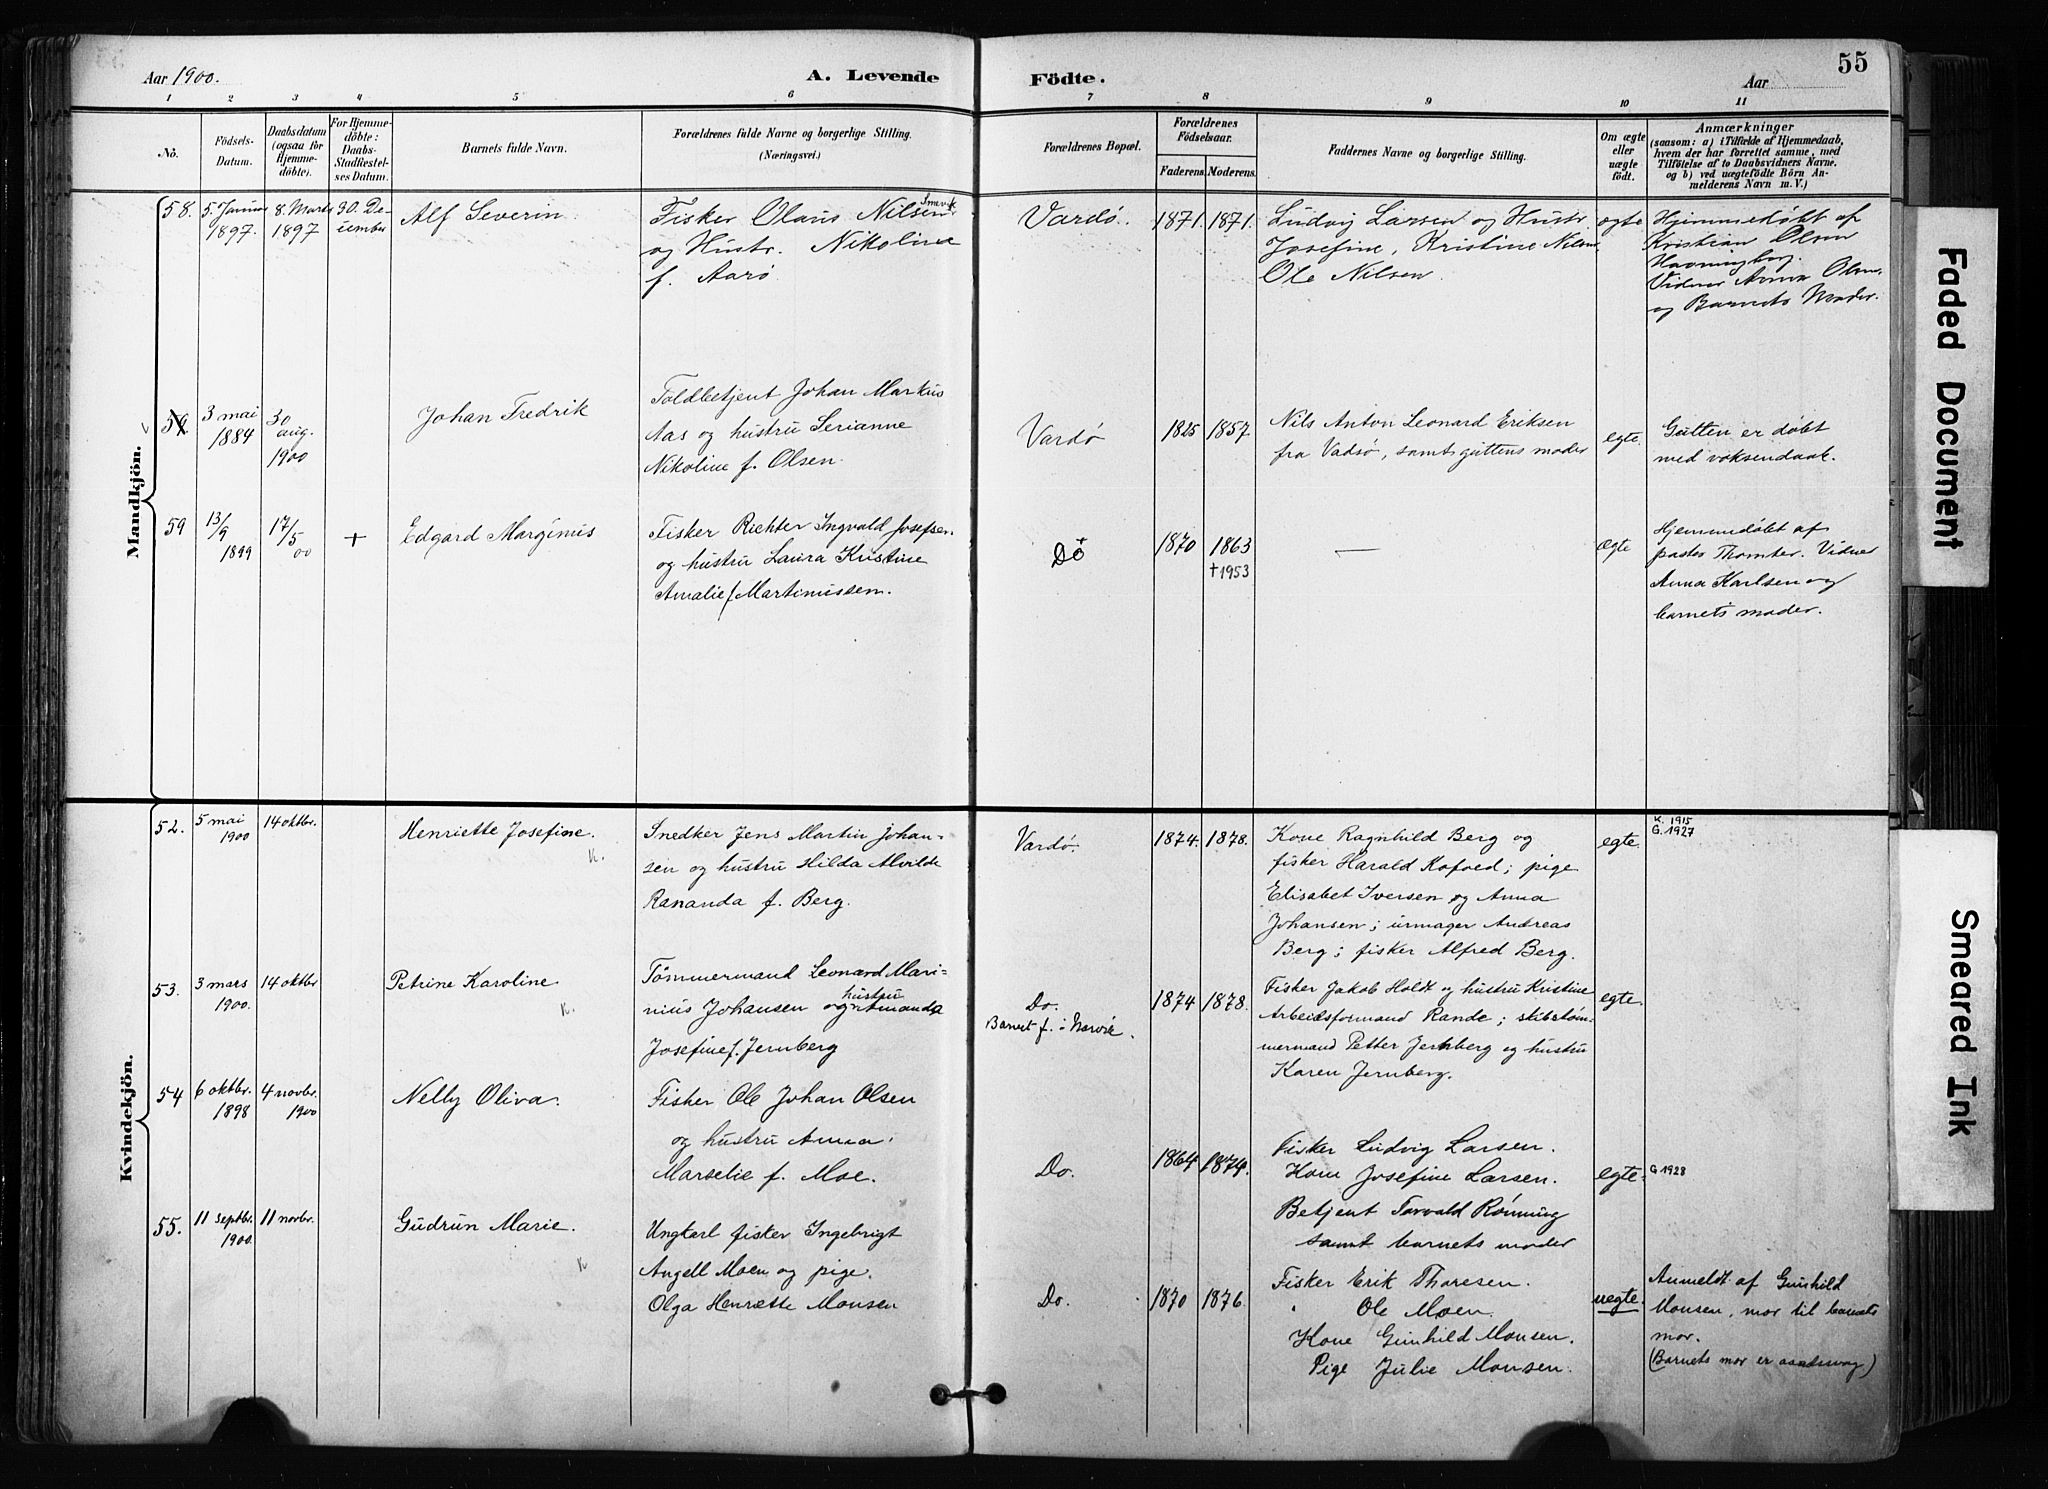 Aar 1900.
A. Levende Födte.
Aar
55
1 2 3 4 5 6 7 8 9 10 11
No.
Födsels-Datum.
Daabsdatum (ogsaa for Hjemme-döbte).
For Hjemme-döbte: Daabs-Stadfæstel-ses Datum.
Barnets fulde Navn.
Forældrenes fulde Navne og borgerlige Stilling. (Næringsvei.)
Forældrenes Bopæl.
Forældrenes Födselsaar.
Faderens. Moderens.
Faddernes Navne og borgerlige Stilling.
Om ægte eller uægte födt.
Anmærkninger
(saasom: a) i Tilfælde af Hjemmedaab, hvem der har forrettet samme, med Tilföielse af to Daabsvidners Navne, og b) ved uægtefödte Börn An-melderens Navn m. V.)
Mandkjön.
58.
5. Januar 1897.
8. Marts 1897
30. De-cember
Alf Severin
Fisker Olaus Nilsen
og Hustr. Nikoline
f. Aarø
Vardø.
1871. 1871.
Ludvig Larsen og Hustr.
Josefine, Kristine Nilsen
Ole Nilsen.
ægte
Hjemmedøbt af
Kristian Olsen
Vidner Anna Olsen
og Barnets Moder.
59.
3 mai 1884
30 aug. 1900
Johan Fredrik
Toldbetjent Johan Markus
Aas og hustru Serianne
Nikoline f. Olsen.
Vardø
1825 1857
Nils Anton Leonard Eriksen
fra Vadsø, samt guttens moder
egte.
Gutten er døbt
med voksendaab.
59
13/9 1899
17/5 00
+
Edgard Marginus
Fisker Richter Ingvald Josefsen
og hustru Laura Kristine
Amalie f. Martinussen.
Do
1870 1863
† 1953
—
ægte
Hjemmedøbt af
pastor Thomter. Vidner
Anna Karlsen og
barnets moder.
Kvindekjön.
52.
5 mai 1900
14 oktbr.
Henriette Josefine.
K.
Snedker Jens Martin Johan-
sen og hustru Hilda Alvilde
Rananda f. Berg.
Vardø.
1874. 1878.
Kone Ragnhild Berg og
fisker Harald Kofoed; pige
Elisabet Iversen og Anna
Johansen; urmager Andreas
Berg; fisker Alfred Berg.
egte.
K. 1915
G. 1927
53.
3 mars 1900.
14 oktbr
Petrine Karoline
K.
Tømmermand Leonard Mari-
nius Johansen og hustru Amanda
Josefine f. Jernberg
Do.
Barnet f. i Narvik.
1874 1878.
Fisker Jakob Holdt og hustru Kristine
Arbeidsformand Rande; skibstøm-
mermand Petter Jernberg og hustru
Karen Jernberg.
egte
54
6 oktbr. 1898
4 novbr. 1900
Nelly Oliva.
Fisker Ole Johan Olsen
og hustru Anna
Marselie f. Moe.
Do.
1864 1874.
Fisker Ludvig Larsen.
Kone Josefine Larsen.
Betjent Torvald Rønning
samt barnets moder
egte.
G 1928
55.
11 septbr. 1900.
11 novbr.
Gudrun Marie.
K
Ungkarl fisker Ingebrigt
Angell Moen og pige
Olga Henriette Monsen
Do.
1870 1876.
Fisker Erik Thoresen.
" Ole Moen.
Kone Gunhild Monsen.
Pige Julie Monsen.
uegte.
Anmeldt af Gunhild
Monsen, mor til barnets
mor.
(Barnets mor er aandssvag)
Faded Document
Smeared Ink